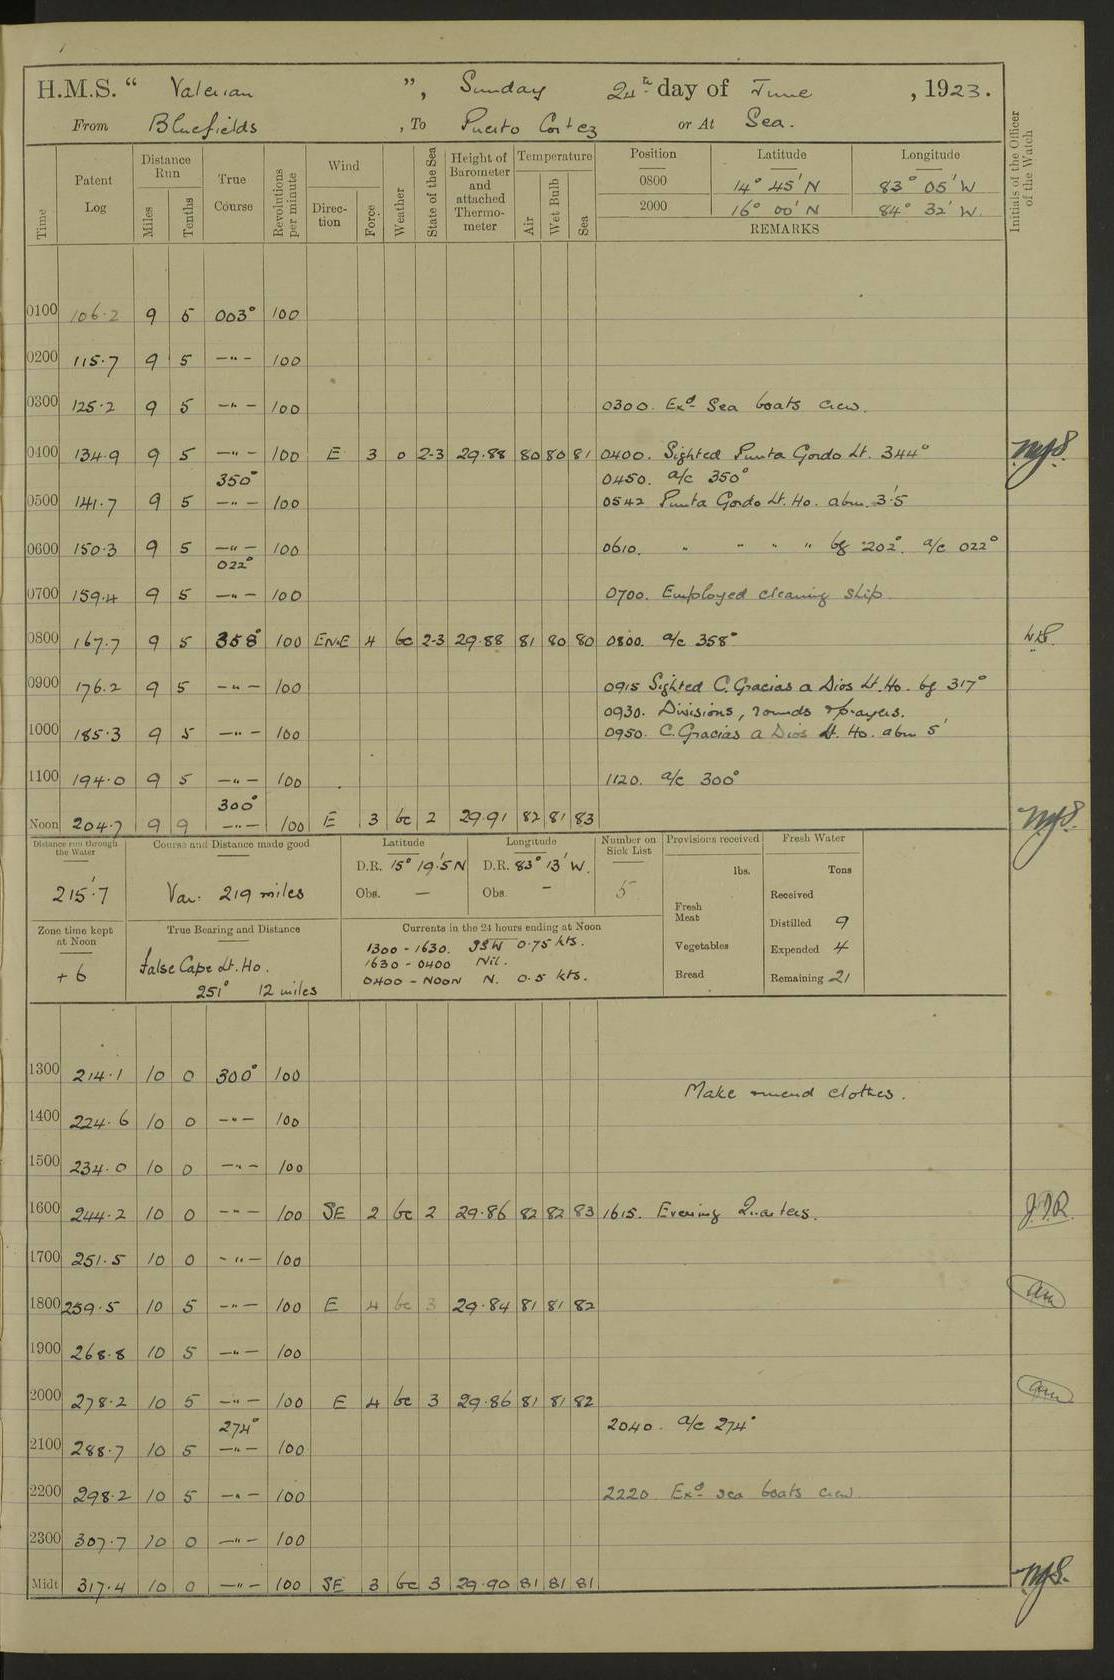 H.M.S. “ Valerian ”, Sunday 24th day of June , 1923.
From Bluefields , To Puerto Cortez or At Sea.
Time Patent Log Distance Run Miles Tenths True Course Revolutions per minute Wind Direction Force Weather State of the Sea Height of Barometer and attached Thermometer Temperature Air Wet Bulb Sea Position Latitude Longitude Initials of the Officer of the Watch
0800 14° 45' N 83° 05' W
2000 16° 00' N 84° 32' W.
REMARKS
0100 106.2 9 5 003° 100
0200 115.7 9 5 —"— 100
0300 125.2 9 5 —"— 100 0300. Exd. Sea boats crew.
0400 134.9 9 5 —"— 100 E 3 o 2-3 29.88 80 80 81 0400. Sighted Punta Gordo Lt. 344°
350° 0450. a/c 350°
0500 141.7 9 5 —"— 100 0542 Punta Gordo Lt. Ho. abm. 3'.5
0600 150.3 9 5 —"— 100 0610. " " " " bg 202°. a/c 022°
022°
0700 159.4 9 5 —"— 100 0700. Employed cleaning ship
0800 167.7 9 5 358° 100 ENE 4 bc 2-3 29.88 81 80 80 0800. a/c 358°
0900 176.2 9 5 —"— 100 0915 Sighted C. Gracias a Dios Lt. Ho. bg 317°
0930. Divisions, rounds & prayers.
1000 185.3 9 5 —"— 100 0950. C. Gracias a Dios Lt. Ho. abm 5'
1100 194.0 9 5 —"— 100 1120. a/c 300°
300°
Noon 204.7 9 9 —"— 100 E 3 bc 2 29.91 82 81 83
Distance run through the Water Course and Distance made good Latitude Longitude Number on Sick List Provisions received Fresh Water
215'.7 Var. 219 miles D.R. 15° 19'.5 N D.R. 83° 13' W. 5 lbs. Tons
Obs. — Obs. — Received
Fresh Meat Distilled 9
Zone time kept at Noon True Bearing and Distance Currents in the 24 hours ending at Noon
+ 6 False Cape Lt. Ho. 1300 - 1630. SSW 0.75 kts. Vegetables Expended 4
1630 - 0400 Nil.
251° 12 miles 0400 - NOON N. 0.5 kts. Bread Remaining 21
1300 214.1 10 0 300° 100
Make & mend clothes.
1400 224.6 10 0 —"— 100
1500 234.0 10 0 —"— 100
1600 244.2 10 0 —"— 100 SE 2 bc 2 29.86 82 82 83 1615. Evening Quarters. J.I.R.
1700 251.5 10 0 —"— 100
1800 259.5 10 5 —"— 100 E 4 bc 3 29.84 81 81 82
1900 268.8 10 5 —"— 100
2000 278.2 10 5 —"— 100 E 4 bc 3 29.86 81 81 82
274° 2040. a/c 274°
2100 288.7 10 5 —"— 100
2200 298.2 10 5 —"— 100 2220 Exd. sea boats crew
2300 307.7 10 0 —"— 100
Midt 317.4 10 0 —"— 100 SE 3 bc 3 29.90 81 81 81